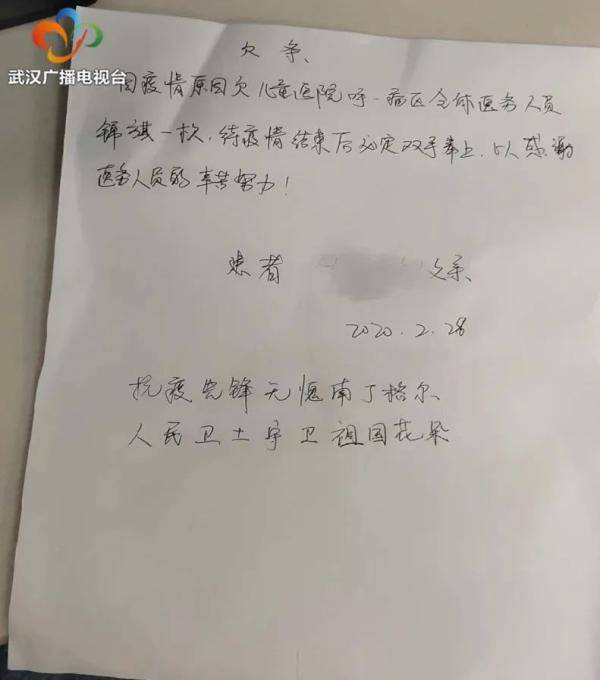 武汉广播电视台
欠条
因疫情原因欠儿童医院呼一病区全体医务人员
锦旗一枚，待疫情结束后必定双手奉上，以感谢
医务人员的辛苦努力！
患者 父亲
2020.2.28
抗疫先锋无愧南丁格尔
人民卫士守卫祖国花朵